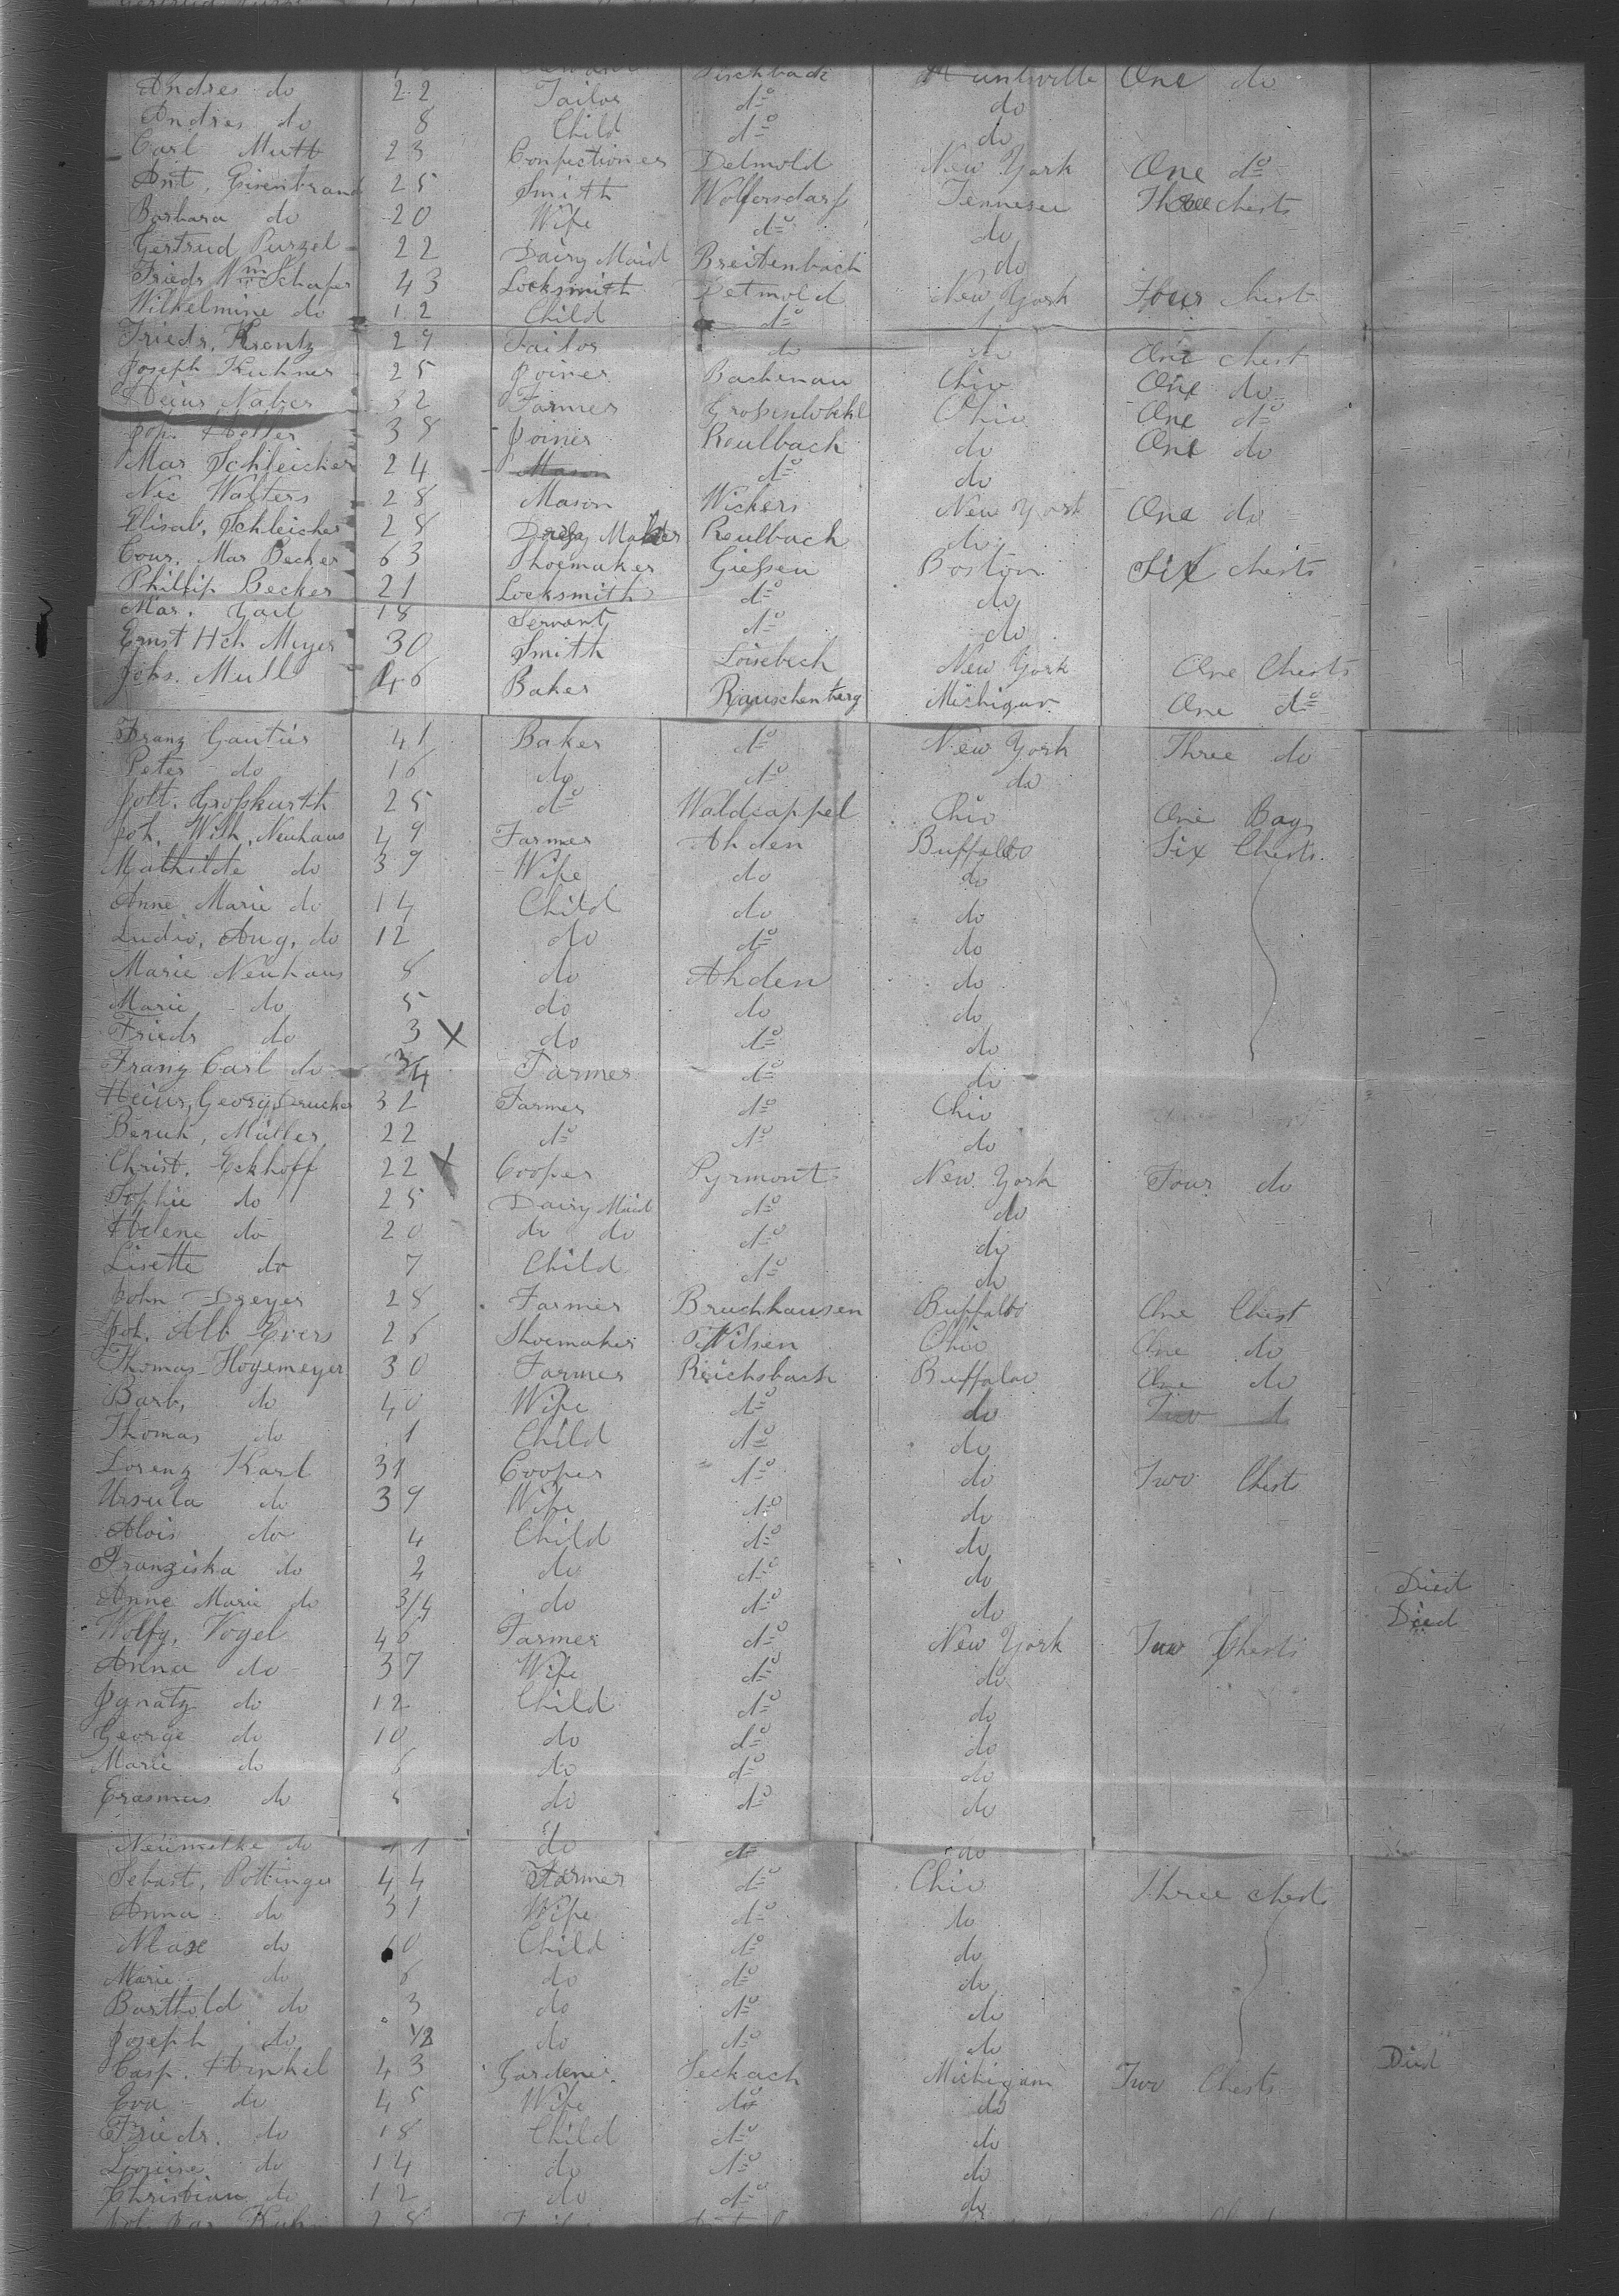 Fischback Huntsville One do
Andres do 22 Tailor do do
Andres do 8 Child do do
Carl Muth 23 Confectioner Detmold New York One do
Ant. Eisenbrand 25 Smith Wolfersdorf Tennesee Three chests
Barbara do 20 Wife do do
Gertrud Purzel 22 Dairy Maid Breitenbach do
Friedr Wm Schafer 43 Locksmith Detmold New York Four Chest
Wilhelmine do 12 Child do
Friedr. Krentz 29 Tailor do do One chest
Joseph Kuhner 25 Joiner Bachenau Ohio One do
Heinr Naber 32 Farmer Ohio One do
Jos. 38 Joiner Reulbach do One do
Mar Schleicher 24 do do
Nic Walters 28 Mason Wickers New York One do
Elisab. Schleicher 28 Reulbach do
Cour. Mar Becker 63 Shoemaker Gießen Boston Six chests
Phillip Becker 21 Locksmith do do
Mar. Gail 18 Servant do do
Ernst Hch Meyer 30 Smith New York One Chests
Johs. Mull 46 Baker Rauschenberg Michigan One do
Franz Gautier 41 Baker do New York Three do
Peter do 16 do do do
Jott. Großkurth 25 do Waldcappel Ohio One Bag
Joh. Wilh. Neuhaus 49 Farmer Ahden Buffaloo Six Chests
Mathilde do 39 Wife do do
Anne Marie do 14 Child do do
Ludw. Aug. do 12 do do do
Marie Neuhaus 8 do Ahden do
Marie do 5 do do do
Friedr do 3 X do do do
Franz Carl do 3/4 Farmer do do
Heinr. Georg 32 Farmer do Ohio
Müller 22 do do do
Christ. Eckhoff 22 X Cooper Pyrmont New York Four do
Sophie do 25 Dairy Maid do do
Helene do 20 do do do do
Lisette do 7 Child do do
John Dreyer 28 Farmer Bruchhausen Buffaloo One Chest
Joh. Alb Evers 26 Shoemaker Wilsen Ohio One do
Thomas Hogemeyer 30 Farmer Reichsbach Buffaloo One do
Barb. do 40 Wife do do Two do
Thomas do 1 Child do do
Lorenz Karl 31 Cooper do do Two Chests
Ursula do 39 Wife do do
Alois do 4 Child do do
Franziska do 2 do do do Died
Anne Marie do 3/4 do do do Died
Wolfg. Vogel 46 Farmer do New York Two Chests
Anna do 37 Wife do do
Ignatz do 12 Child do do
George do 10 do do do
Marie do 6 do do do
Erasmus do do do do
do do do do
Sebast. Pottinger 44 Farmer do Ohio Three chests
Anna do 31 Wife do do
Max do 10 Child do do
Marie do 6 do do do
Barthold do 3 do do do
Joseph do 1/2 do do do
Casp. Hinkel 43 Gardener Seckach Michigan Two Chests Died
Eva do 45 Wife do do
Friedr. do 18 Child do do
Louise do 14 do do do
Christian do 12 do do do